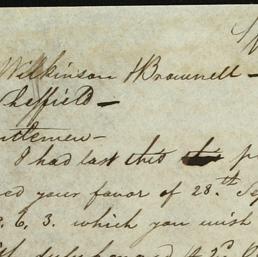 Wilkinson & Brownell -
Sheffield -
ntlemen -
I had last this
ed your favor of 28.th Sep
. 6, 3. which you wish